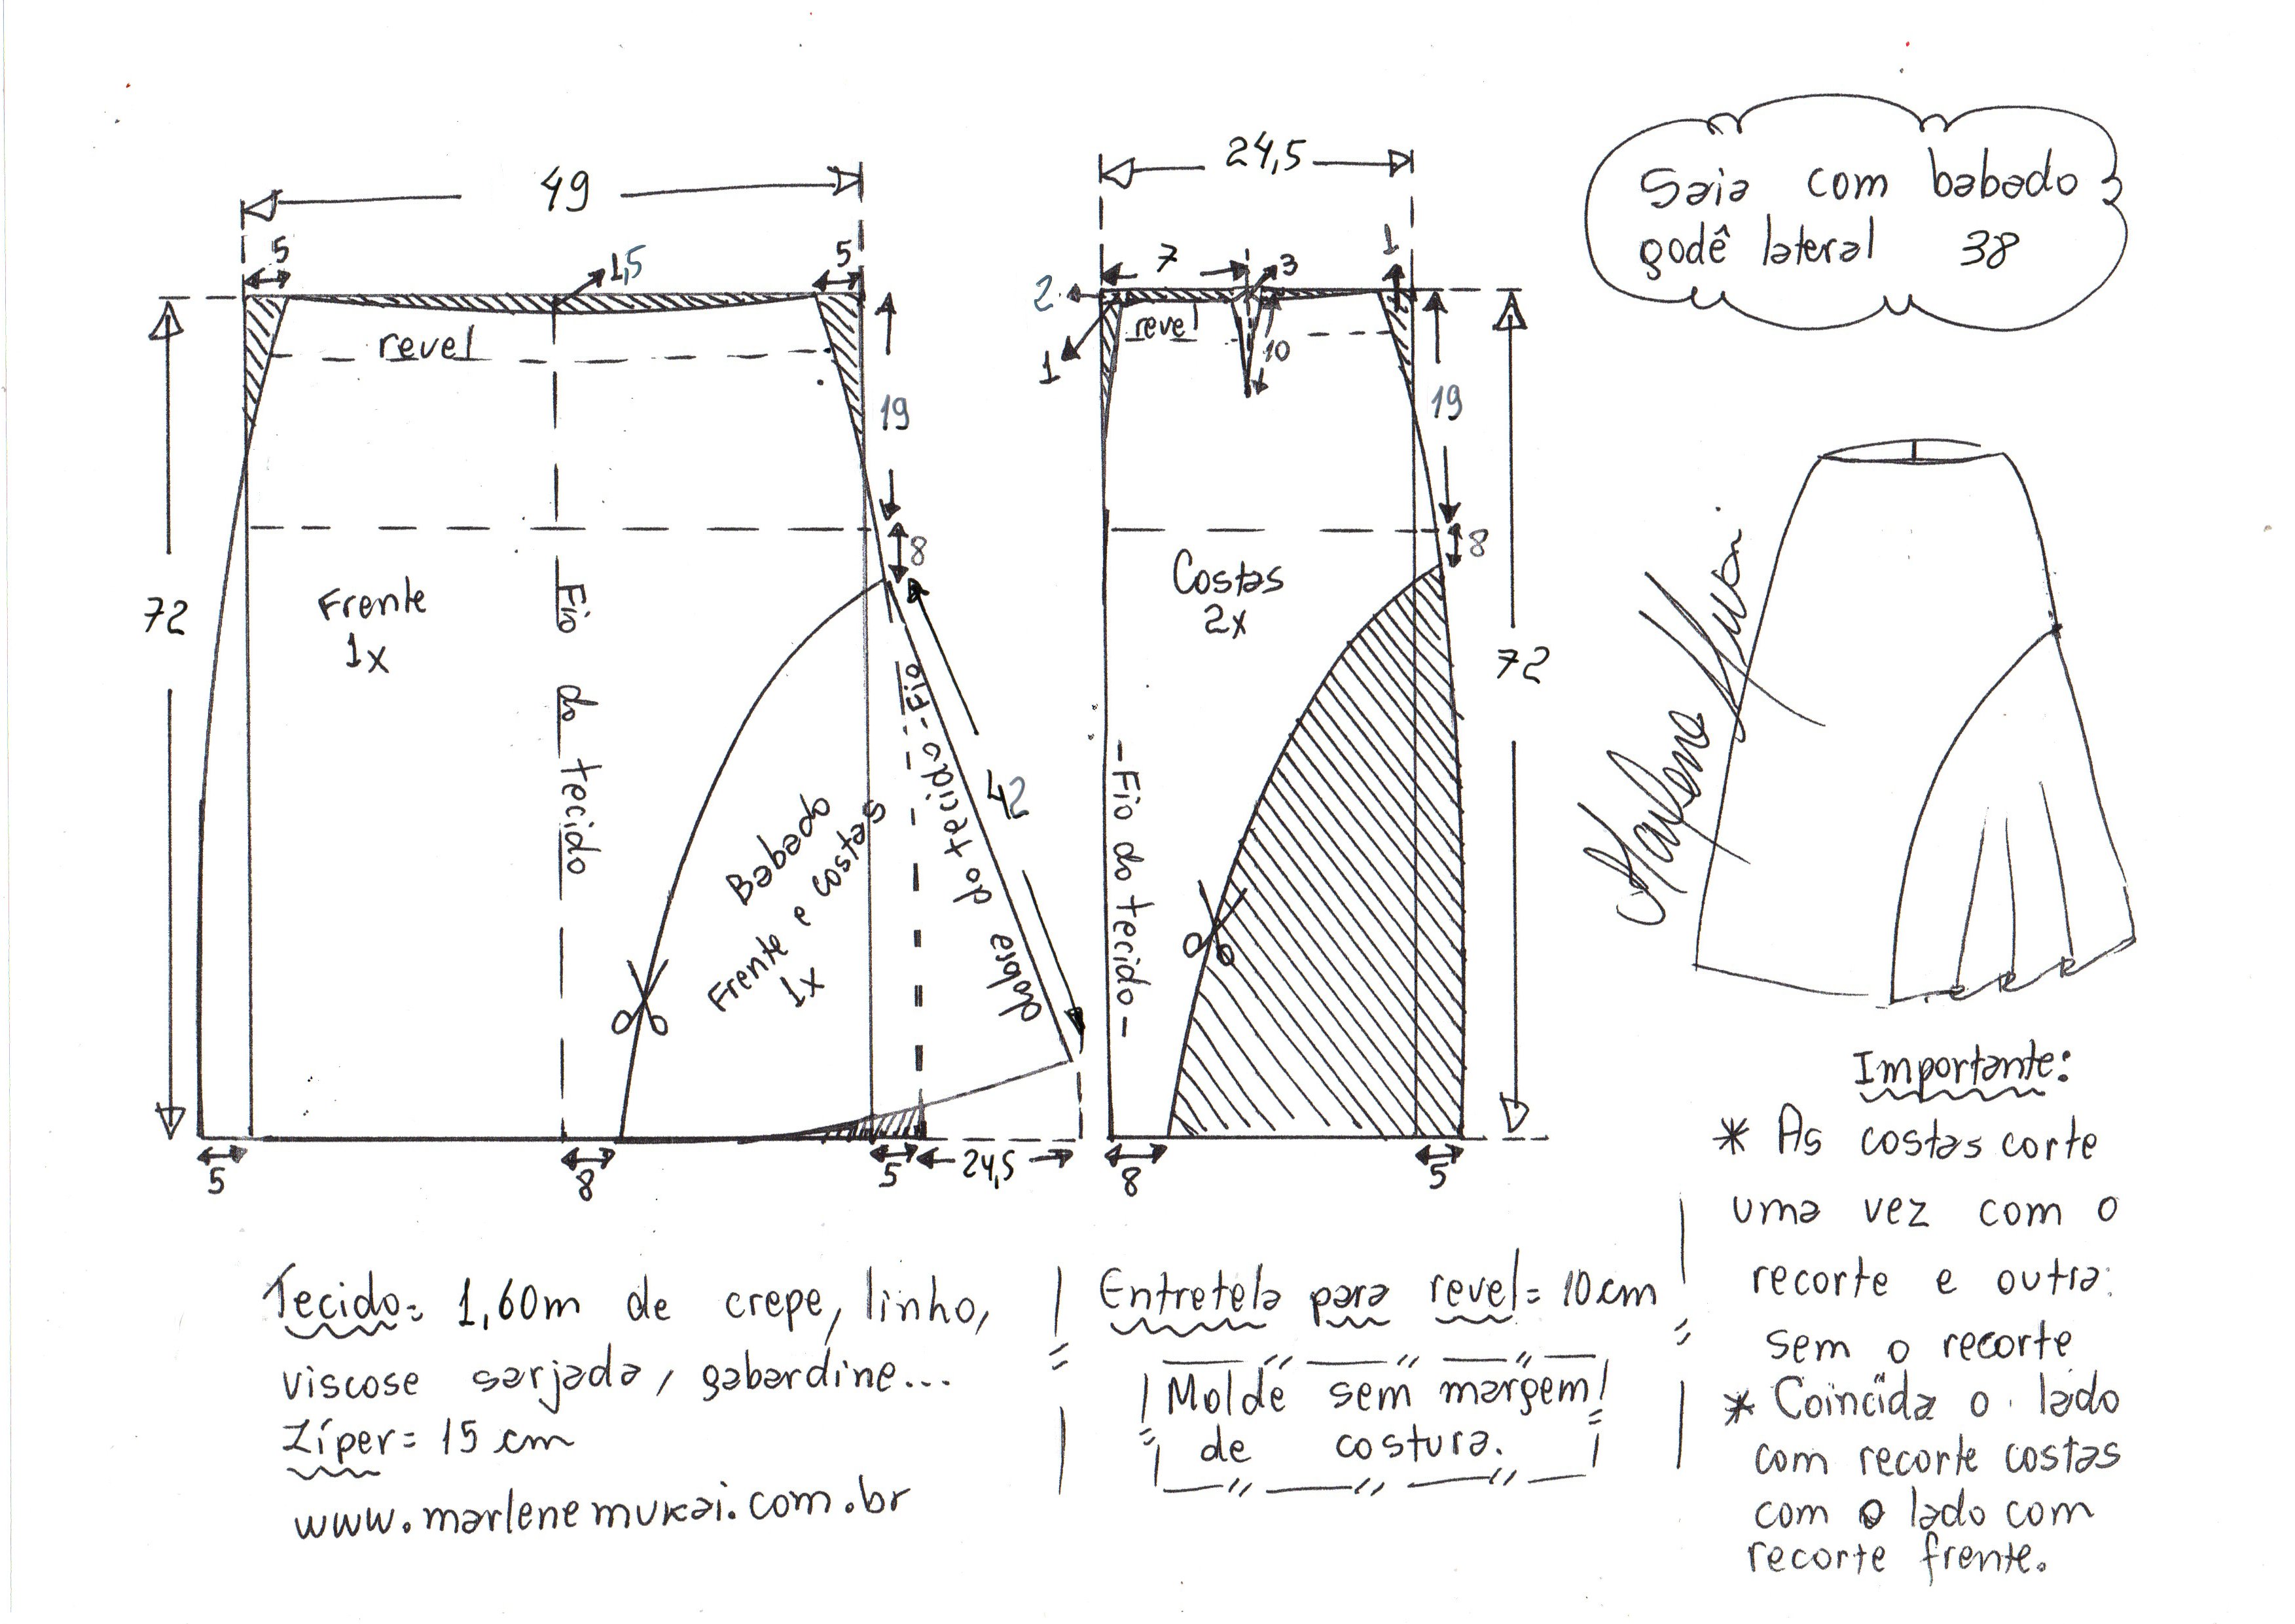 Saia com babado
godê lateral 38
49
5
1,5
5
revel
19
8
72
Frente
1x
Fio do tecido
Babado
Frente e costas
1x
Fio do tecido - dobra
42
5
8
5
24,5
24,5
7
3
1
2
1
revel
10
19
8
Costas
2x
72
- Fio do tecido -
8
5
Marlene Mukai
Importante:
* As costas corte
uma vez com o
recorte e outra
sem o recorte
* Coincida o lado
com recorte costas
com o lado com
recorte frente.
Tecido= 1,60m de crepe, linho,
viscose sarjada, gabardine...
Zíper= 15 cm
www.marlenemukai.com.br
Entretela para revel= 10 cm
Molde sem margem
de costura.